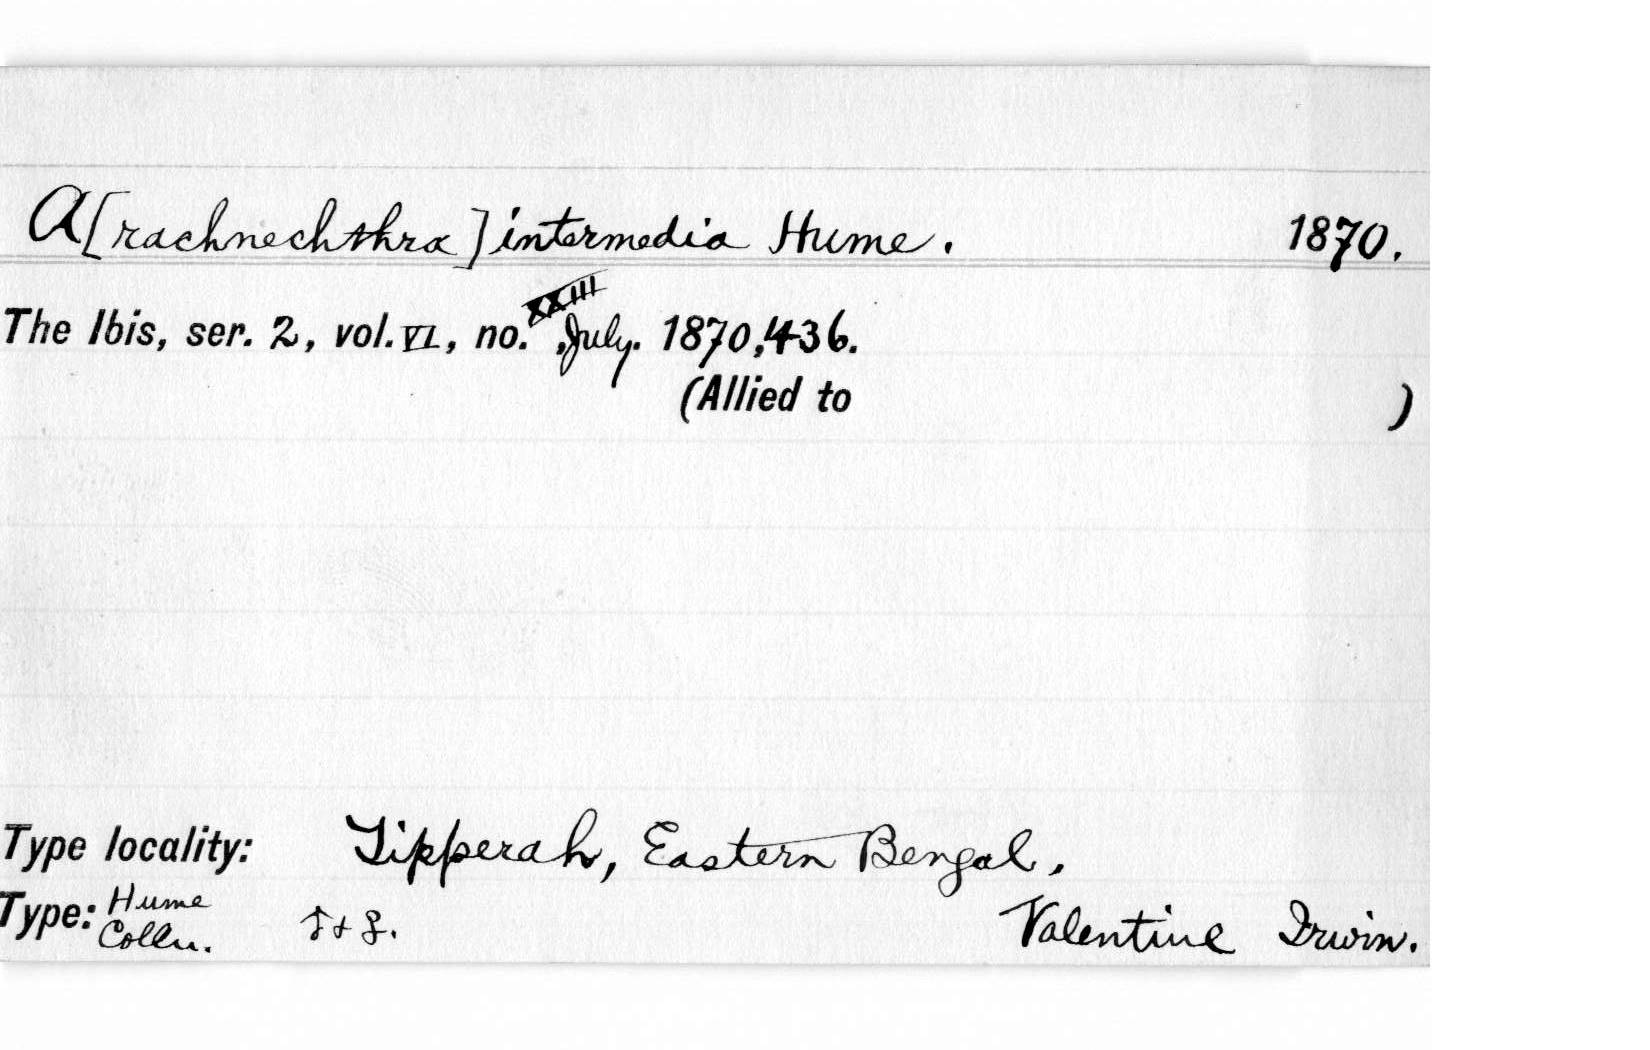 A[rachnechthra] intermedia Hume. 1870.
The Ibis, ser. 2, vol. VI, no. XXIII, July. 1870, 436.
(Allied to )
Type locality: Tipperah, Eastern Bengal.
Type: Hume Colln. ♂ + ♀. Valentine Irwin.